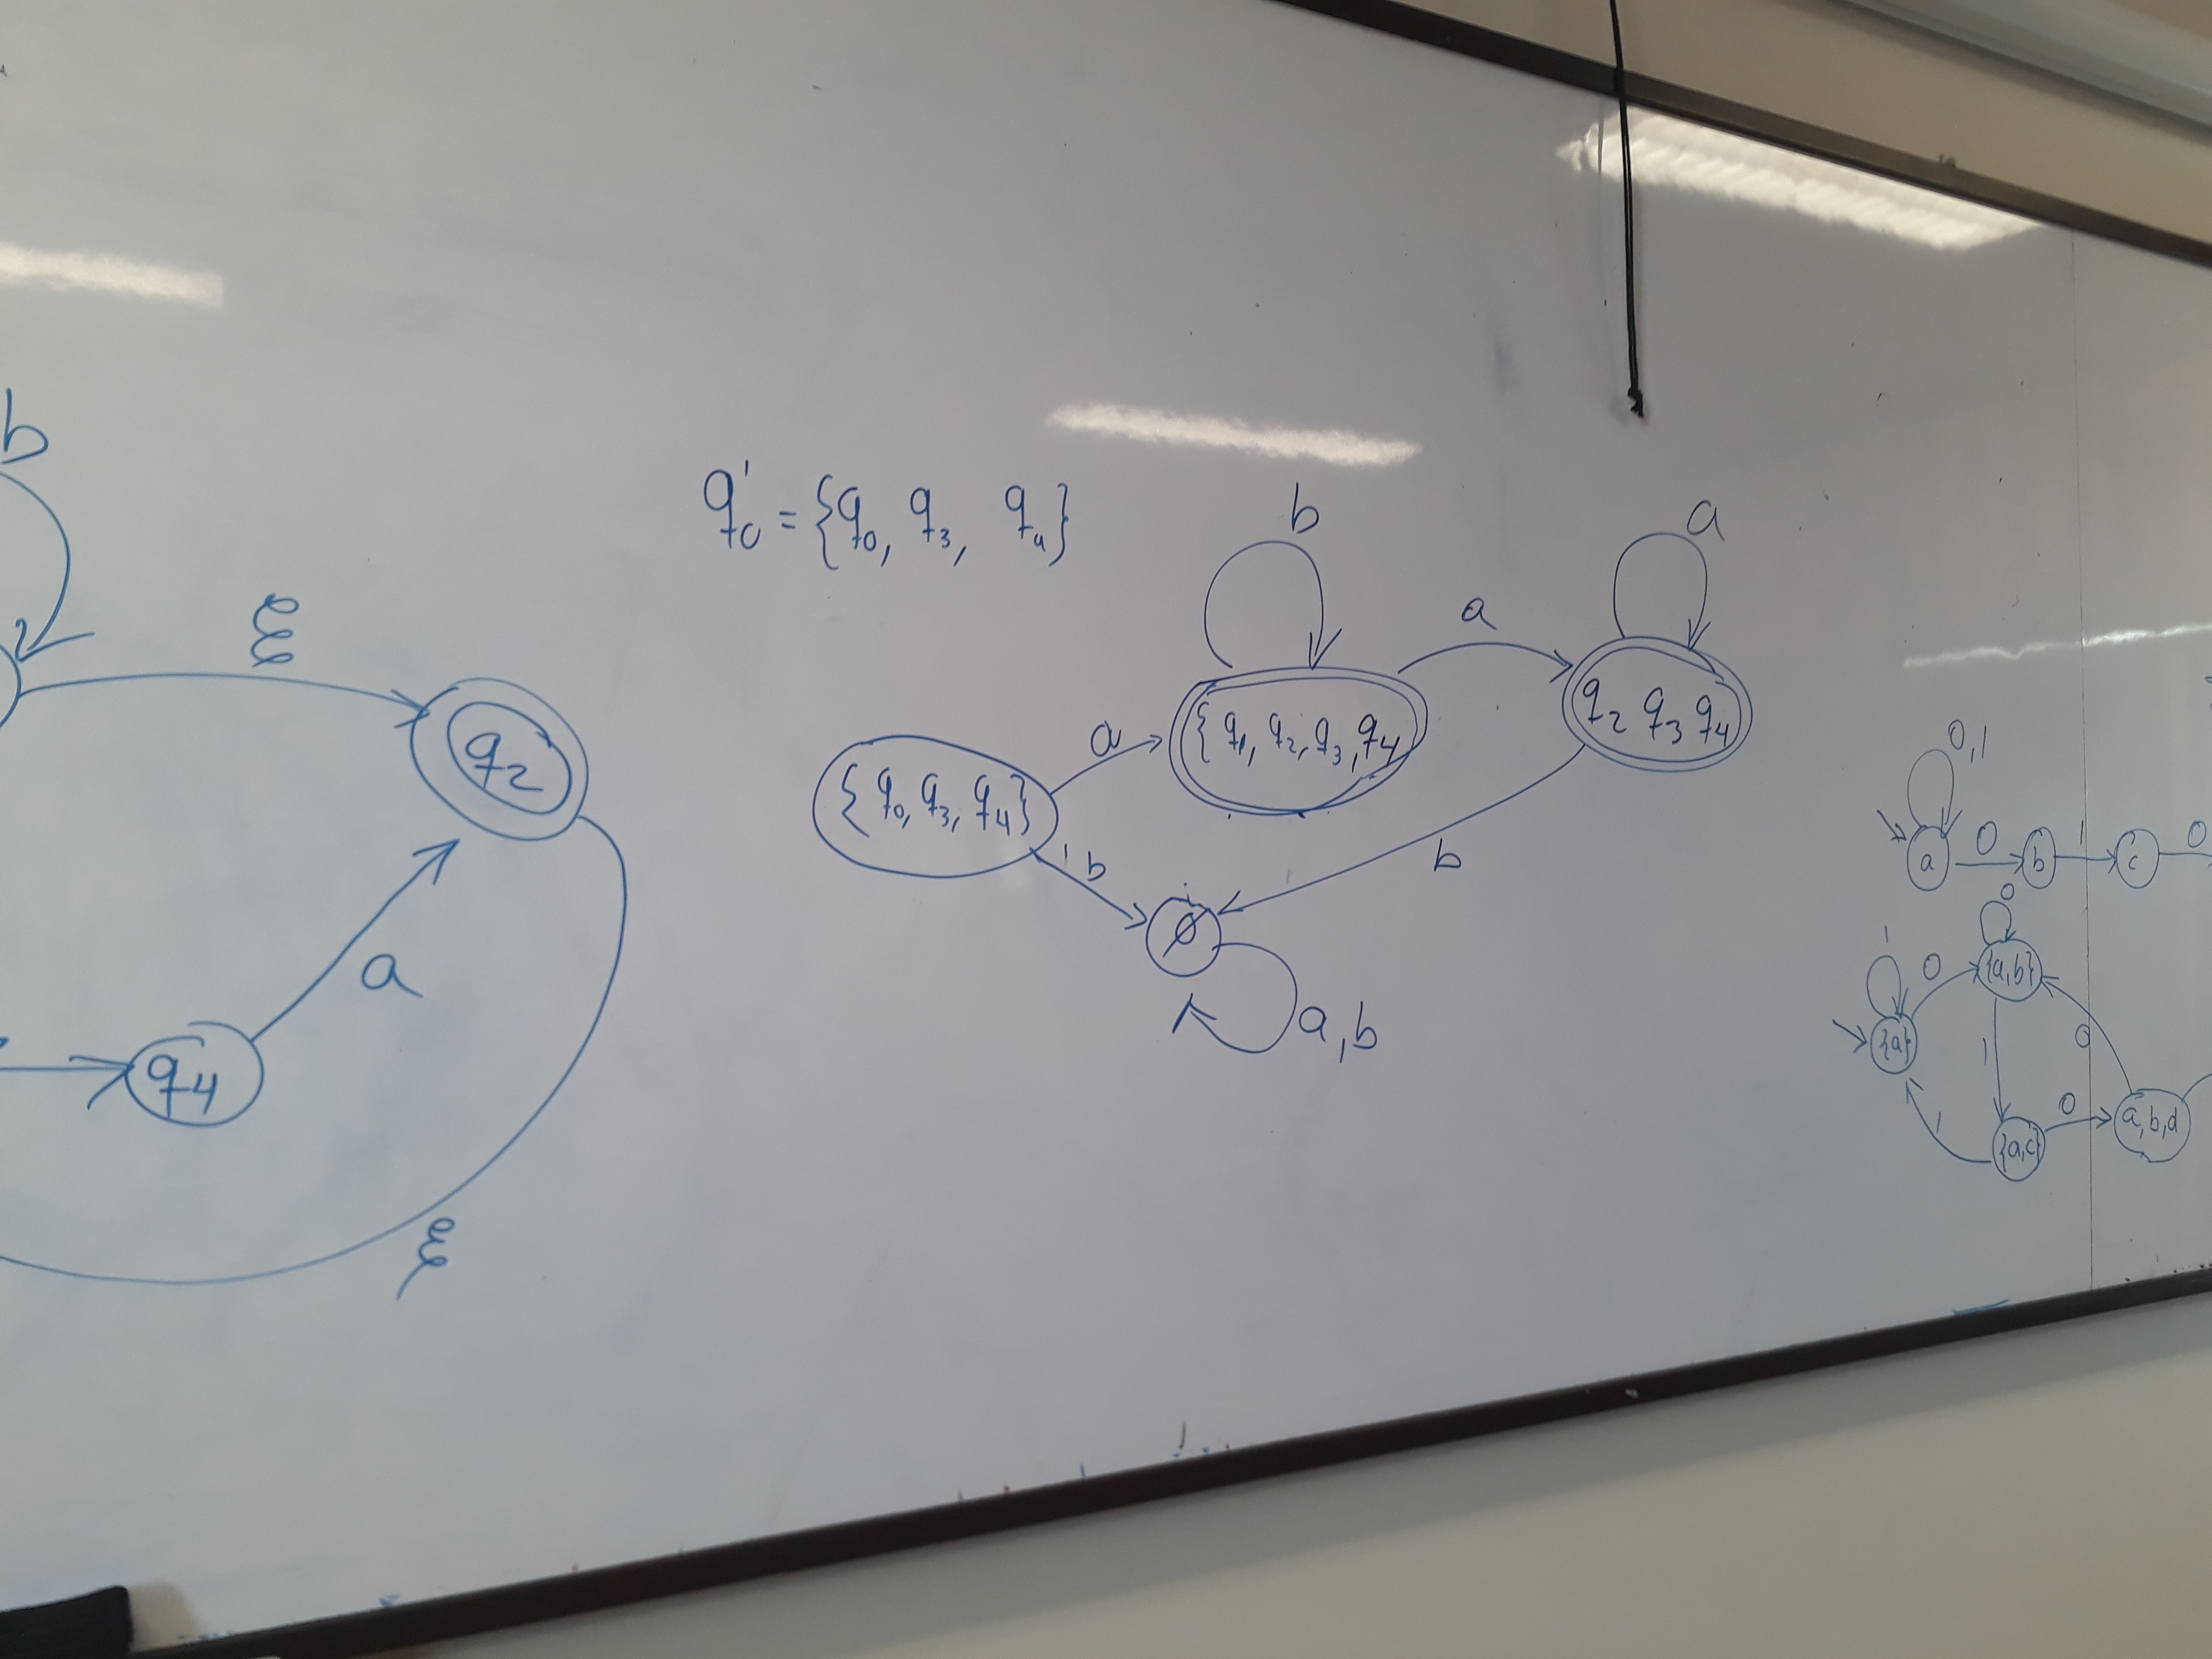 b
ξ
q2
a
q4
ξ
q'0 = {q0, q3, q4}
b
a
a
{q1, q2, q3, q4
q2 q3 q4
a
{q0, q3, q4}
b
b
∅
a,b
0,1
a
0
b
1
c
0
0
1
0
{a,b}
{a}
1
0
1
{a,c}
0
a,b,d